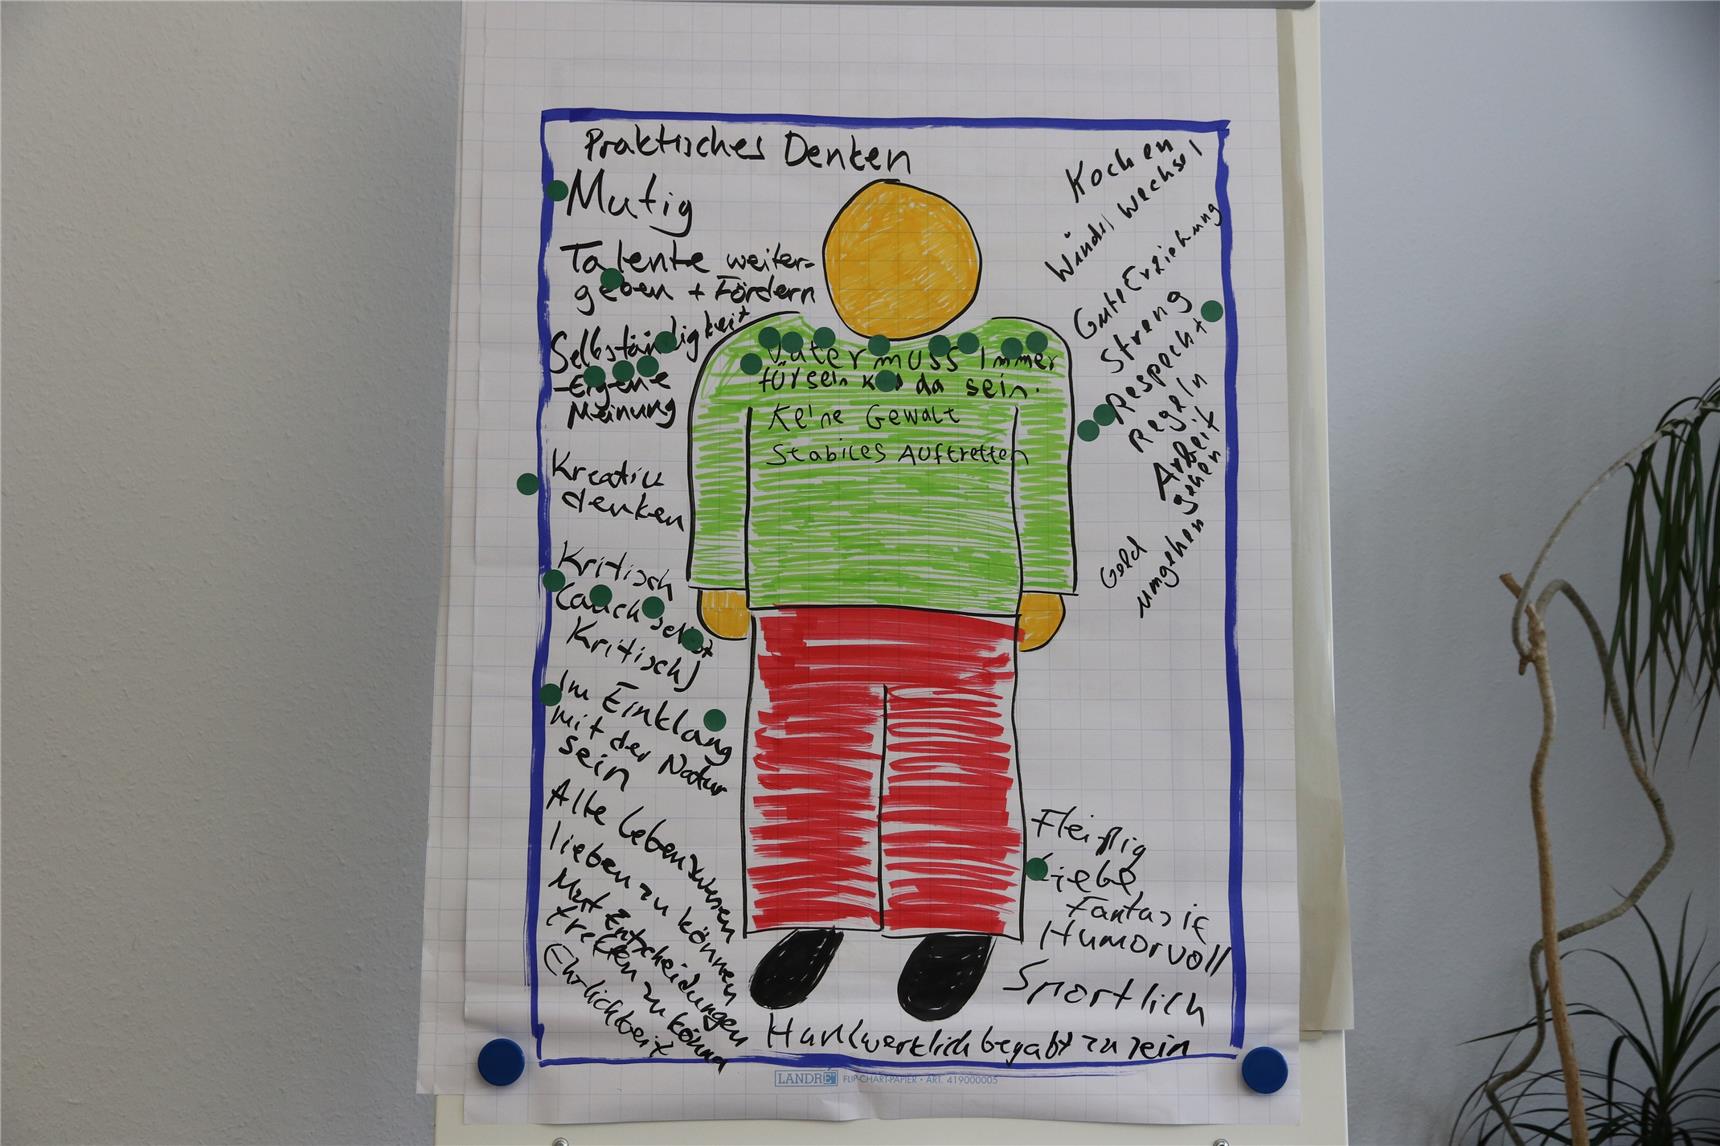 Praktisches Denken
Mutig
Talente weiter-
geben + Fördern
Selbständigkeit
- Eigene
Meinung
Kreativ
denken
Kritisch
(auch selbst
Kritisch)
Im Einklang
mit der Natur
sein
Alte Lebensweisen
lieben zu können
Mut Entscheidungen
treffen zu könne
Ehrlichkeit
Vater muss immer
für sein Kind da sein.
Keine Gewalt
Stabiles Auftretten
Kochen
Windel wechsel
Gute Erziehung
Streng
Respeckt
Regeln
Arbeit
gehen
Geld
umgehen
Fleißig
Liebe,
Fantasie
Humorvoll
Sportlich
Handwerklich begabt zu sein
LANDRÉ FLIP-CHART-PAPIER • ART. 419000005